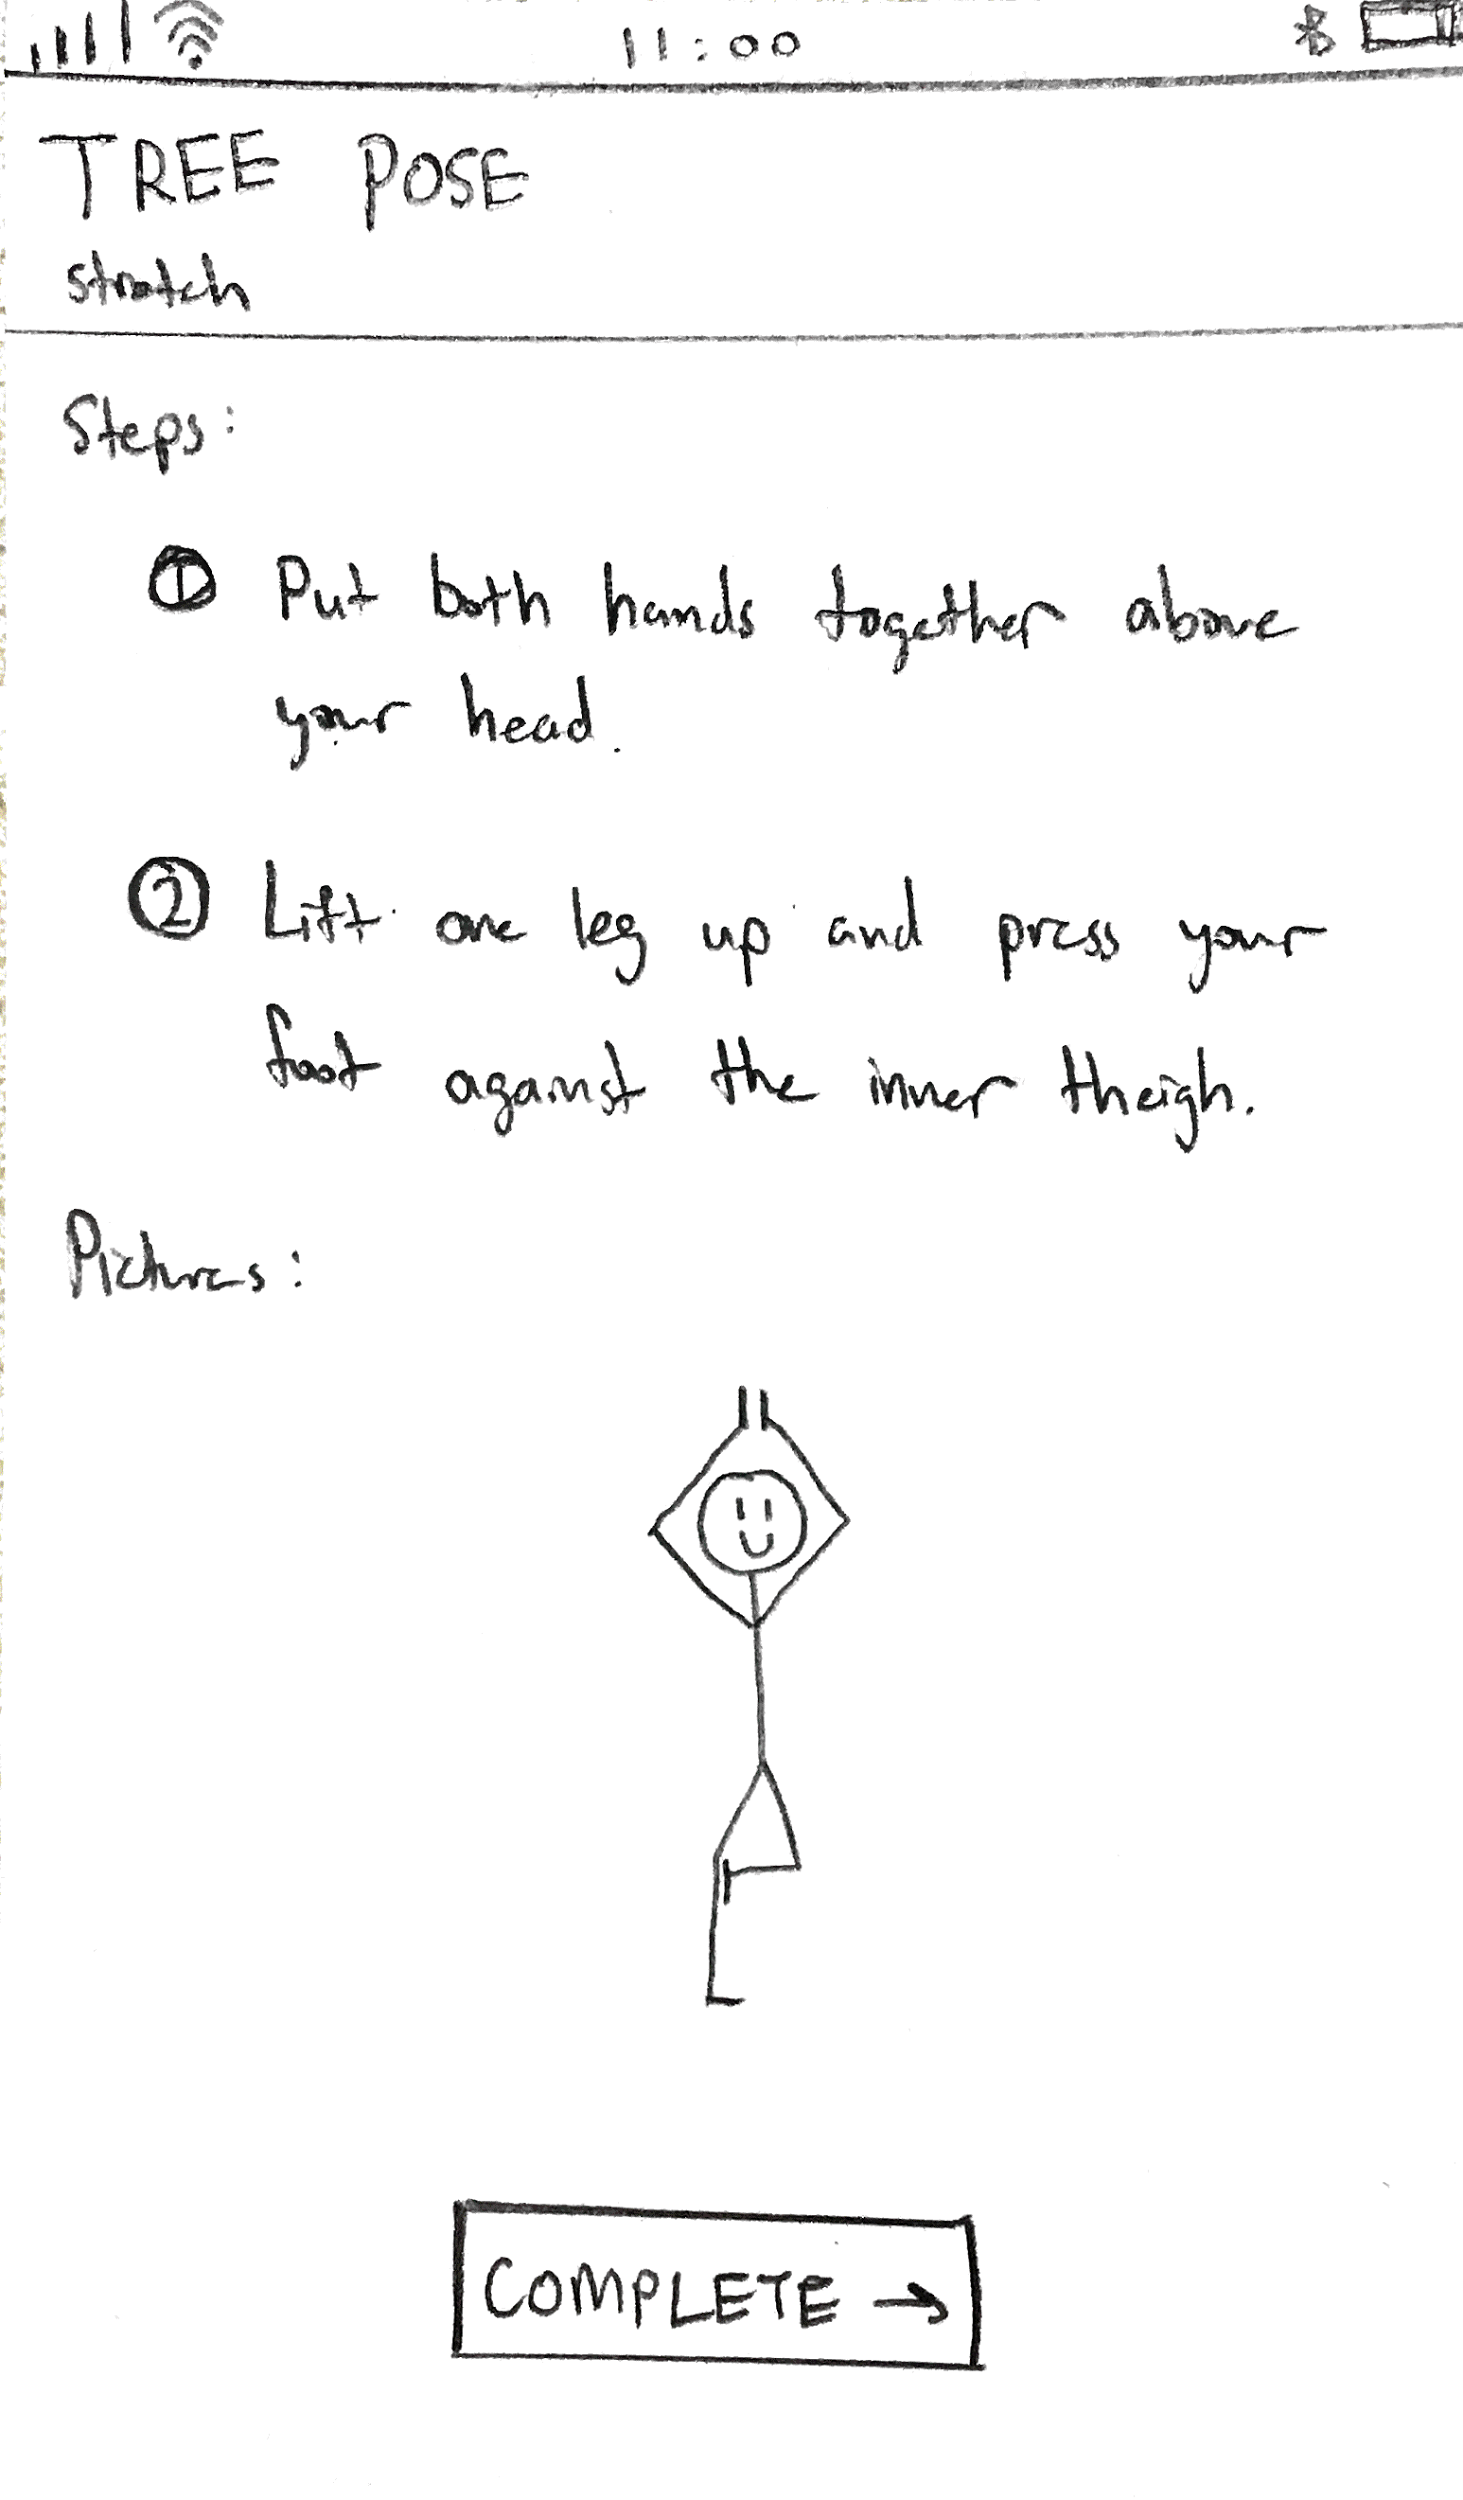 11:00
TREE POSE
stretch
Steps:
① Put both hands together above
your head.
② Lift one leg up and press your
foot against the inner theigh.
Pictures:
COMPLETE →